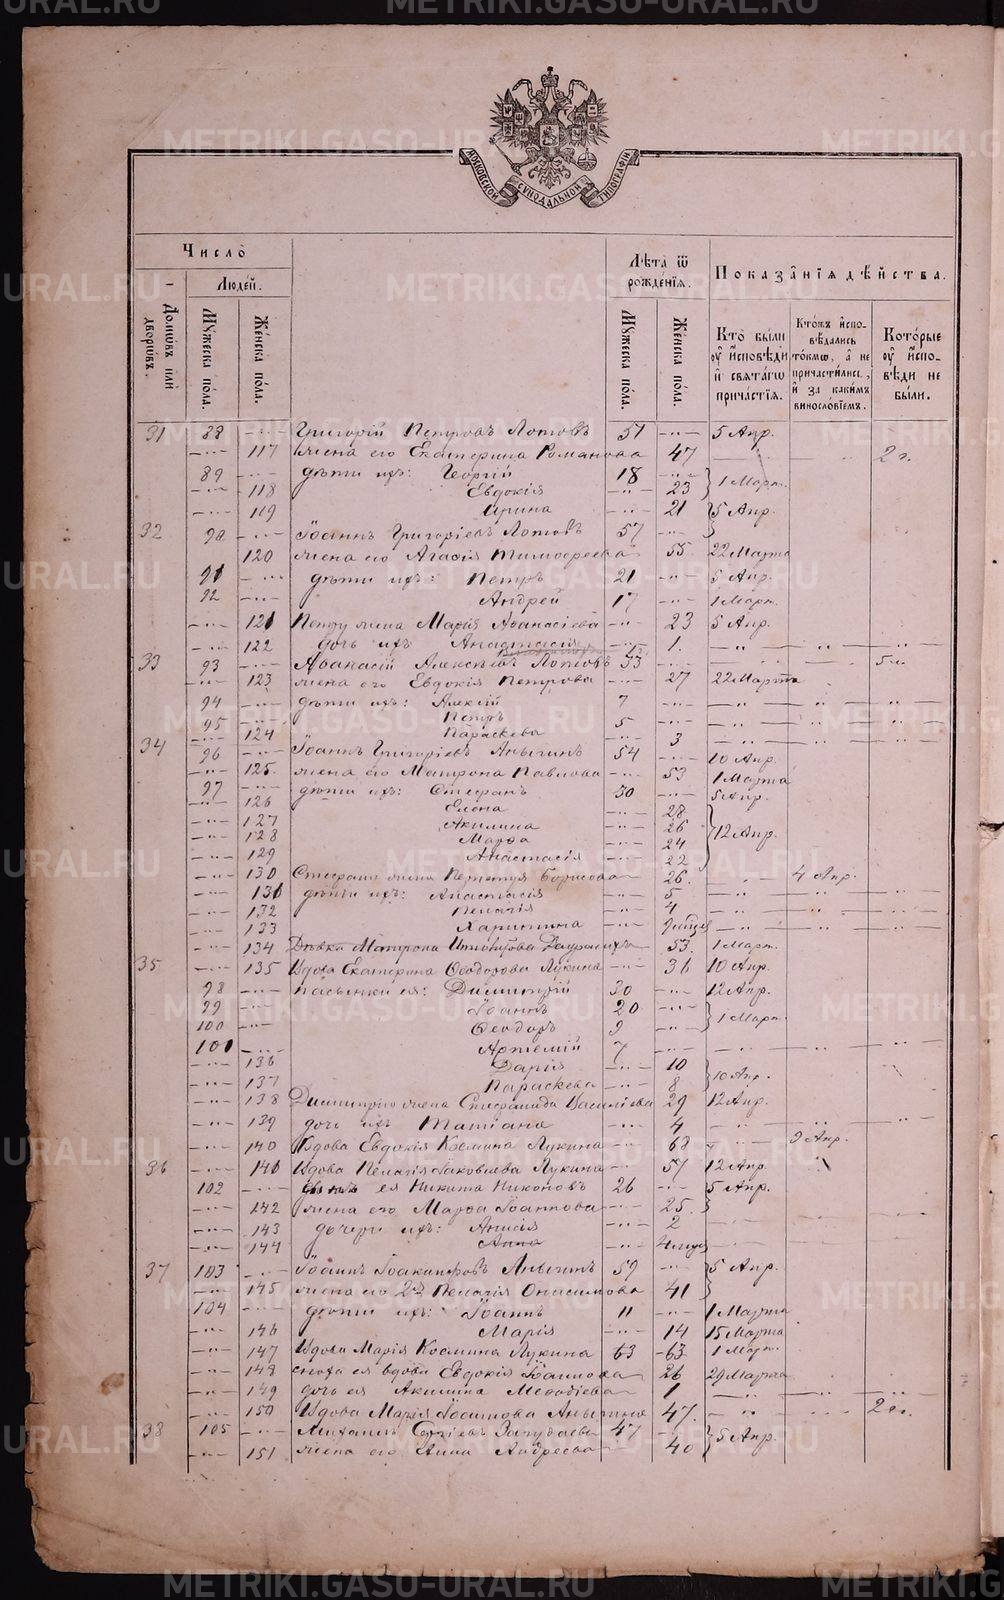 МОСКОВСКОЙ СѴНОДАЛЬНОЙ ТИПОГРАФІИ
Число
Людей.
Лѣта ѿ рожденїѧ.
Показанїѧ дѣйства.
Домѡвъ или дворѡвъ.
Мꙋжеска пола.
Женска пола.
Мꙋжеска пола.
Женска пола.
Кто были оу исповѣди и свѧтагѡ причастїѧ.
Ктожъ исповѣдались токмѡ, а не причастились, и за какимъ винословїемъ.
Которые оу исповѣди не были.
31 88 -··- Григорій Петровъ Лотовъ 51 -··- 5 Апр.
-··- 117 жена его Екатерина Романова -··- 47 2 г.
89 -··- дѣти ихъ: Георгій 18 -··- 1 Март.
-··- 118 Евдокія -··- 23
-··- 119 Ирина -··- 21 5 Апр.
32 90 -··- Іоаннъ Григоріевъ Лотовъ 57 -··-
-··- 120 жена его Агафія Тимофеева -··- 55 22 Марта
91 -··- дѣти ихъ: Петръ 21 -··- 5 Апр.
92 -··- Андрей 17 -··- 1 Март.
-··- 121 Петру жена Марія Афанасіева -··- 23 5 Апр.
-··- 122 дочь ихъ Анастасія -··- 1. -··- -··- -··-
33 93 -··- Афанасій Алексѣевъ Лотовъ 33 -··- -··- -··-
-··- 123 жена его Евдокія Петрова -··- 27 22 Марта
94 -··- дѣти ихъ: Алексій 7 -··- -··- -··- -··-
95 -··- Петръ 5 -··- -··- -··- -··-
-··- 124 Параскева -··- 3 -··- -··- -··-
34 96 -··- Іоаннъ Григоріевъ Аньгинъ 54 -··- 10 Апр.
-··- 125. жена его Матрона Павлова -··- 53 1 Марта
97 -··- дѣти ихъ: Стефанъ 30 -··- 5 Апр.
-··- 126 Елена -··- 28 12 Апр.
-··- 127 Акилина -··- 26
-··- 128 Марфа -··- 24
-··- 129 Анастасія -··- 22
-··- 130 жена Перпетуя Борисова -··- 26. 4 Апр.
-··- 131 дѣти ихъ: Анастасія -··- 5 -··- -··- -··-
-··- 132 Пелагія -··- 4 -··- -··- -··-
-··- 133 Харитина -··- -··- -··- -··-
-··- 134 Дѣвка Матрона -··- 53. 1 Март.
35 -··- 135 Вдова Екатерина Феодорова Лукина -··- 36 10 Апр.
98 -··- пасынки ея: Димитрій 30 -··- 12 Апр.
99 -··- Іоаннъ 20 -··- 1 Март.
100 -··- Феодоръ 9 -··-
101 -··- Артемій 7 -··- -··- -··- -··-
-··- 136 Дарія -··- 10 10 Апр.
-··- 137 Параскева -··- 8
-··- 138 Димитрію жена Стефанида Василіева -··- 29 12 Апр.
-··- 139 дочь ихъ Татіана -··- 4 -··- -··- -··-
-··- 140 Вдова Евдокія Космина Лукина -··- 68 -··- 9 Апр.
36 -··- 141 Вдова Пелагія Іаковлева Лукина -··- 57 12 Апр.
102 -··- сынъ ея Никита Никоновъ 26 -··- 5 Апр.
-··- 142 жена его Марфа Іоаннова -··- 25.
-··- 143 дочери ихъ: Анисія -··- 2 -··- -··- -··-
-··- 144 Анна -··- -··- -··- -··-
37 103 -··- Іоаннъ Іоакимовъ Аньгинъ 59 -··- 5 Апр.
-··- 145 жена его 2я Пелагія Онисимова -··- 41
104 -··- дѣти ихъ: Іоаннъ 11 -··- 1 Марта
-··- 146 Марія -··- 14 15 Марта
-··- 147 Вдова Марія Космина Лукина 63 -63 1 Март.
-··- 148 сноха ея вдова Евдокія Іоаннова -··- 26 29 Марта
-··- 149 дочь ея Акилина Мефодіева -··- 1 -··- -··- -··-
-··- 150 Вдова Марія Іоаннова Аньгина -··- 47. -··- -··- 2 г.
38 105 -··- Михаилъ 47 -··- 5 Апр.
-··- 151 жена его Анна Андреева -··- 40
METRIKI.GASO-URAL.RU